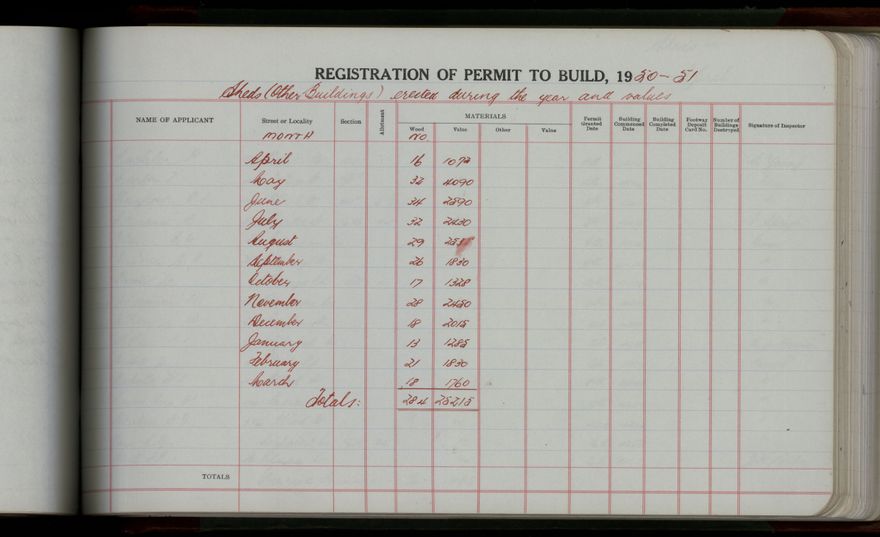 REGISTRATION OF PERMIT TO BUILD, 1950-51
Sheds (Other Buildings) erected during the year and values
NAME OF APPLICANT Street or Locality Section Allotment MATERIALS Permit Granted Date Building Commenced Date Building Completed Date Footway Deposit Card No. Number of Buildings Destroyed Signature of Inspector
Wood Value Other Value
MONTH NO.
April 16 1072
May 32 4090
June 34 2590
July 32 2430
August 29 2535
September 26 1830
October 17 1328
November 28 2450
December 18 2015
January 13 1285
February 21 1830
March 18 1760
Totals: 284 25215
TOTALS